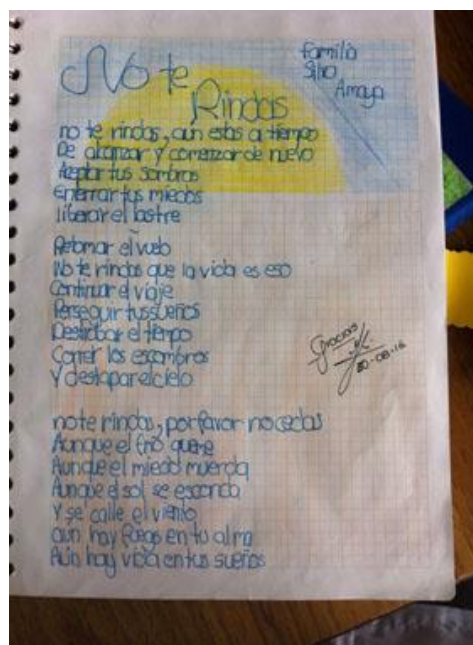 No te
Rindas
Familia
Silvo
Amaya
no te rindas, aún estas a tiempo
De alcanzar y comenzar de nuevo
Aceptar tus sombras
Enterrar tus miedos
liberar el lastre
Retomar el vuelo
No te rindas que la vida es eso
Continuar el viaje
Perseguir tus sueños
Destrabar el tiempo
Correr los escombros
Y destapar el cielo
Gracias
20-08-16
no te rindas, por favor no cedas
Aunque el frio queme
Aunque el miedo muerda
Aunque el sol se esconda
Y se calle el viento
aún hay fuego en tu alma
Aún hay vida en tus sueños